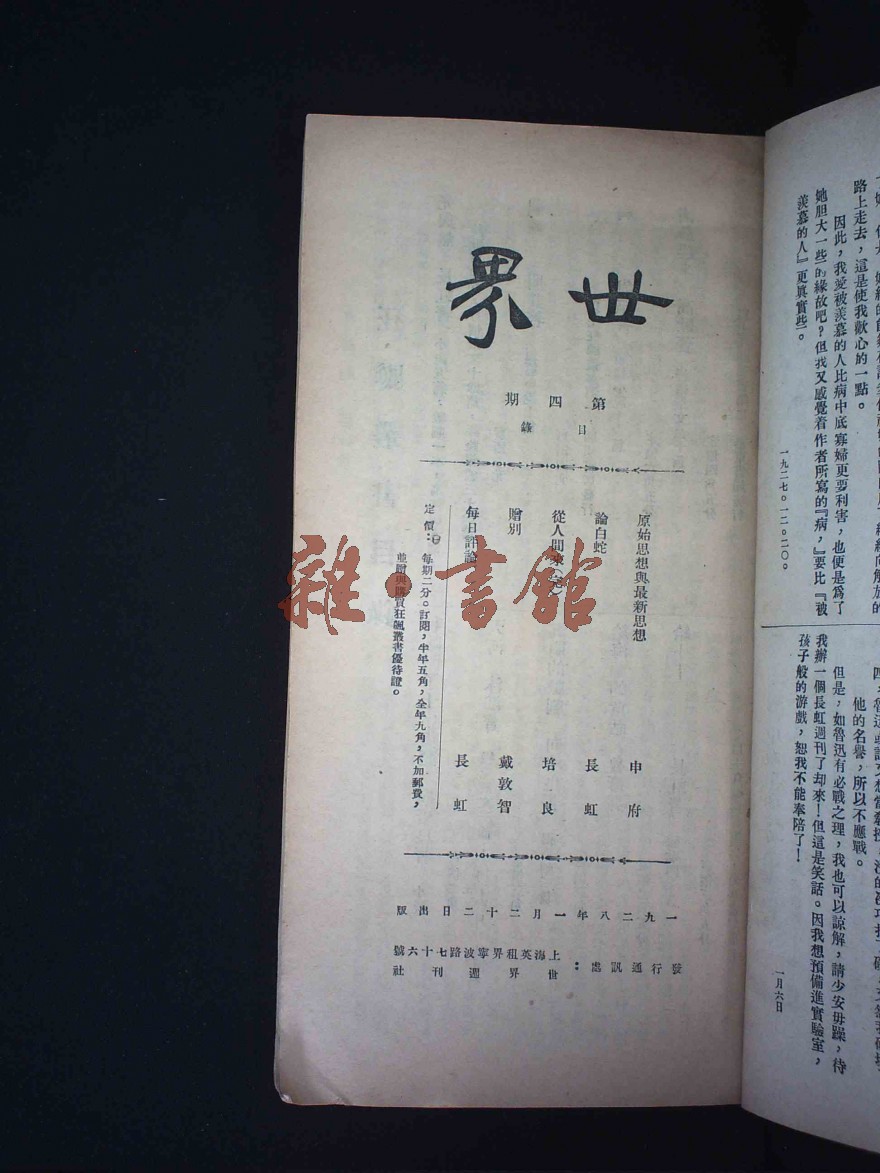 世界
第四期
目錄
原始思想與最新思想 申府
論白蛇 長虹
從人間來 培良
贈別 戴敦智
每日評論 長虹
定價：每期二分。訂閱，半年五角，全年九角，不加郵費，
並贈與購買狂飆叢書優待證。
一九二八年一月二十二日出版
發行通訊處：
上海英租界寧波路七十六號
世界週刊社
雜·書館
路上走去，這是使我歡心的一點。
因此，我愛被羨慕的人比病中底寡婦更要利害，也便是爲了
她胆大一些的緣故吧？但我又感覺着作者所寫的『病，』要比『被
羨慕的人』更眞實些。
一九二七。一二。二〇。
他的名譽，所以不應戰。
但是，如魯迅有必戰之理，我也可以諒解，請少安毋躁，待
我辦一個長虹週刊了却來！但這是笑話。因我想預備進實驗室，
孩子般的游戲，恕我不能奉陪了！
一月六日